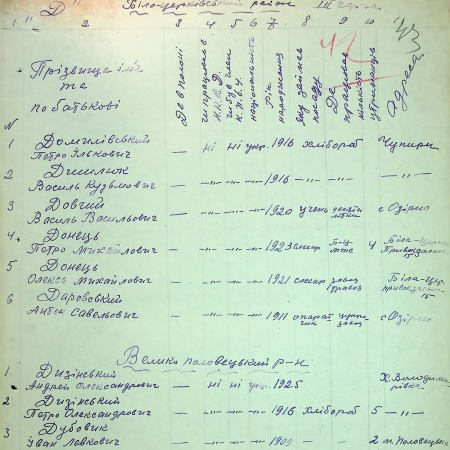 "Д" Біло-церківський район III черга.
2 3 4 5 6 7 8 9 10 11
№ Прізвище ім'я та по батькові
Де в полоні
національність
Рік народження
Яку займав посаду
Де працював
кількість утриманців
адреса
1 Домчлівський
Петро Ількович — ні ні укр. 1916 хлібороб Чупири
2 Дишлюк
Василь Кузьмович — -"- -"- -"- 1916 — — -"-
3 Довгий
Василь Васильович — -"- -"- -"- 1920 учень с Озірно
4. Донець
Петро Михайлович — -"- -"- -"- 1923 слюсар 4 Біла-Церк
5 Донець
Олекса Михайлович — -"- -"- -"- 1921 слюсар Біла-Цер.
6 Даровський
Антон Савельович — -"- -"- -"- 1911 с Озірно
Велико половецький р-н
1 Дизінський
Андрей Олександрович — ні ні укр. 1925 Х. Володими
рівка
2 Дизінський
Петро Олександрович — -"- -"- -"- 1916 хлібороб 5 -"-
3 Дубовик
Іван Левкович — -"- -"- -"- 1909 -"- 2 м. Половецьке